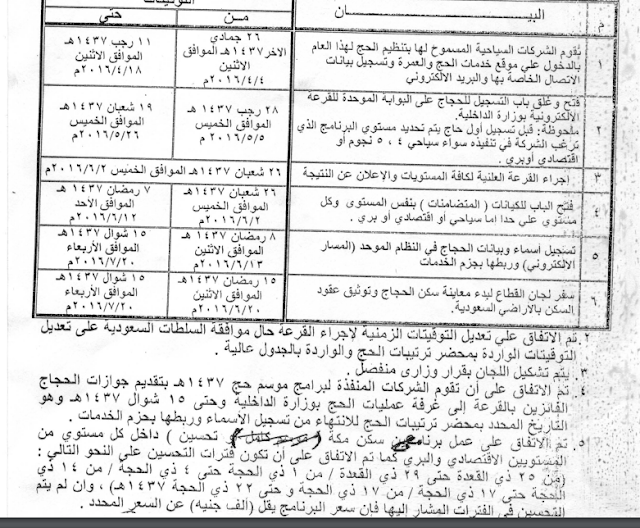 التوقيتات
م
البيـــــــــان
مـــن
حتي
١
يقوم الشركات السياحية المسموح لها بتنظيم الحج لهذا العام
بالدخول علي موقع خدمات الحج والعمرة وتسجيل بيانات
الاتصال الخاصة بها والبريد الالكتروني
٢٦ جمادي
الاخر١٤٣٧هـ
الموافق
الاثنين
٢٠١٦/٤/٤م
١١ رجب ١٤٣٧هـ
الموافق
الاثنين
٢٠١٦/٤/١٨م
٢
فتح وغلق باب التسجيل للحجاج على البوابة الموحدة للقرعة
الالكترونية بوزارة الداخلية.
ملحوظة: قبل تسجيل أول حاج يتم تحديد مستوي البرنامج الذي
ترغب الشركة في تنفيذه سواء سياحي ٤ ، ٥ نجوم أو
اقتصادي أوبري .
٢٨ رجب ١٤٣٧هـ
الموافق
الخميس
٢٠١٦/٥/٥م
١٩ شعبان ١٤٣٧هـ
الموافق
الخميس
٢٠١٦/٥/٢٦م
٣
إجراء القرعة العلنية لكافة المستويات والإعلان عن النتيجة
٢٦ شعبان ١٤٣٧هـ الموافق الخميس ٢٠١٦/٦/٢م
٤
فتح الباب للكيانات ( المتضامنات ) بنفس المستوى وكل
مستوي علي حدا اما سياحي أو اقتصادي أو بري .
٢٦ شعبان ١٤٣٧هـ
الموافق
الخميس
٢٠١٦/٦/٢م
٧ رمضان ١٤٣٧هـ
الموافق
الاحد
٢٠١٦/٦/١٢م
٥
تسجيل أسماء وبيانات الحجاج في النظام الموحد (المسار
الالكتروني) وربطها بحزم الخدمات
٨ رمضان ١٤٣٧هـ
الموافق
الاثنين
٢٠١٦/٦/١٣م
١٥ شوال ١٤٣٧هـ
الموافق
الأربعاء
٢٠١٦/٧/٢٠م
٦
سفر لجان القطاع لبدء معاينة سكن الحجاج وتوثيق عقود
السكن بالاراضي السعودية.
١٥ رمضان ١٤٣٧هـ
الموافق
الاثنين
٢٠١٦/٦/٢٠م
١٥ شوال ١٤٣٧هـ
الموافق
الأربعاء
٢٠١٦/٧/٢٠م
٢. تم الاتفاق علي تعديل التوقيتات الزمنية لإجراء القرعة حال موافقة السلطات السعودية على تعديل
التوقيتات الواردة بمحضر ترتيبات الحج والواردة بالجدول عالية .
٣. يتم تشكيل اللجان بقرار وزارى منفصل .
٤. تم الاتفاق علي أن تقوم الشركات المنفذة لبرامج موسم حج ١٤٣٧هـ بتقديم جوازات الحجاج
الفائزين بالقرعة إلى غرفة عمليات الحج بوزارة الداخلية وحتى ١٥ شوال ١٤٣٧هـ وهو
التاريخ المحدد بمحضر ترتيبات الحج للانتهاء من تسجيل الأسماء وربطها بحزم الخدمات .
٥. تم الاتفاق علي عمل سكن مكة ( تحسين ) داخل كل مستوي من
المستويين الاقتصادي والبري كما تم الاتفاق علي أن تكون فترات التحسين علي النحو التالي :
(من ٢٥ ذي القعدة حتى ٢٩ ذي القعدة / من ١ ذي الحجة حتى ٤ ذي الحجة / من ١٤ ذي
الحجة حتى ١٧ ذي الحجة / من ١٧ ذي الحجة و حتى ٢٢ ذي الحجة ١٤٣٧هـ) ، وان لم يتم
التحسين في الفترات المشار إليها فإن سعر البرنامج يقل (ألف جنيه) عن السعر المحدد .